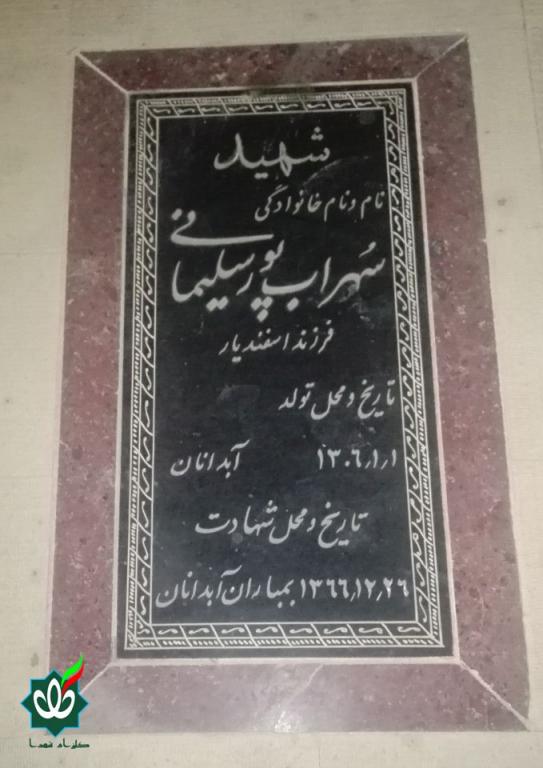 شهید
نام و نام خانوادگی
سهراب پورسلیمانی
فرزند اسفندیار
تاریخ و محل تولد
۱۳۰۶٫۱٫۱ آبدانان
تاریخ و محل شهادت
۱۳۶۶٫۱۲٫۲۶ بمباران آبدانان
گلزار شهدا